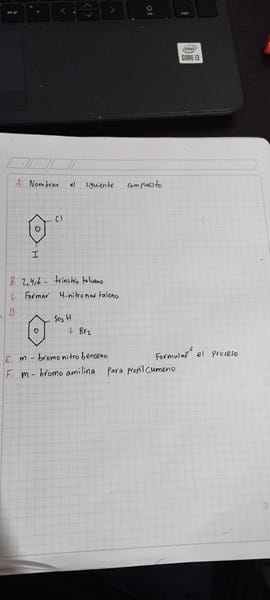 intel
CORE i3
A. Nombrar el siguiente compuesto
Cl
I
B. 2,4,6 - trinitro tolueno
C. Formar 4-nitronaftaleno
D.
SO3H
+ Br2
E. m - bromonitrobenceno Formular el proceso
F. m - bromo amilina para propil cumeno